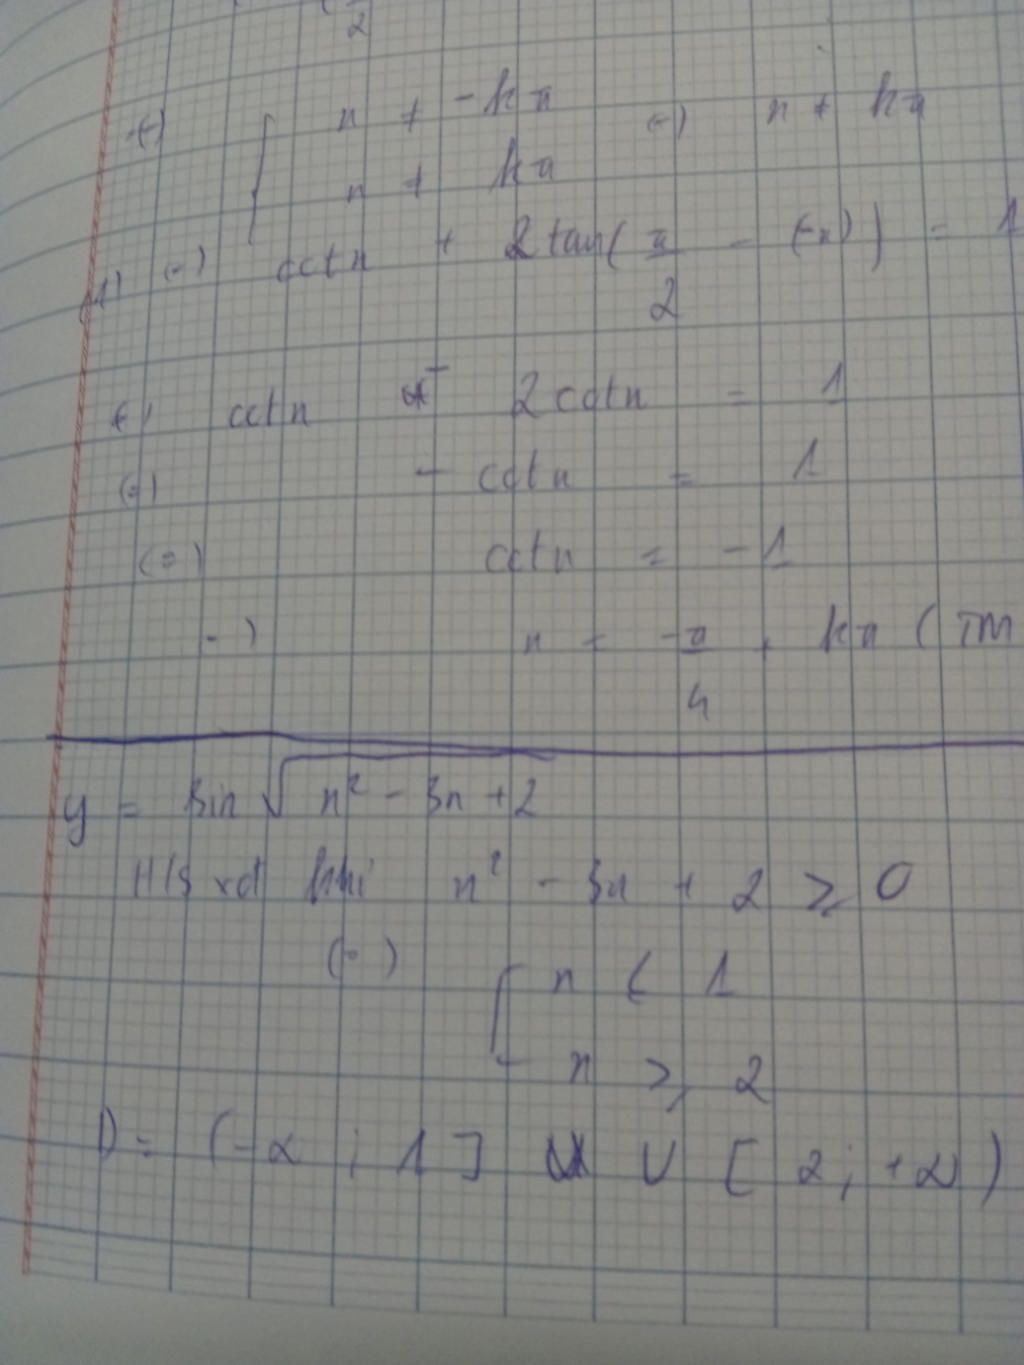 2
(=) { x ≠ -kπ (=) x ≠ kπ
x ≠ kπ
(1) (=) cotx + 2tan(π/2 - (-x)) = 1
(=) cotx - 2cotx = 1
(=) - cotx = 1
(=) cotx = -1
(=) x = -π/4 + kπ (TM
y = sin √(x² - 3x + 2)
H/s xđ khi x² - 3x + 2 ≥ 0
(=) [ x ≤ 1
x ≥ 2
D = (-∞ ; 1] U [ 2; +∞)